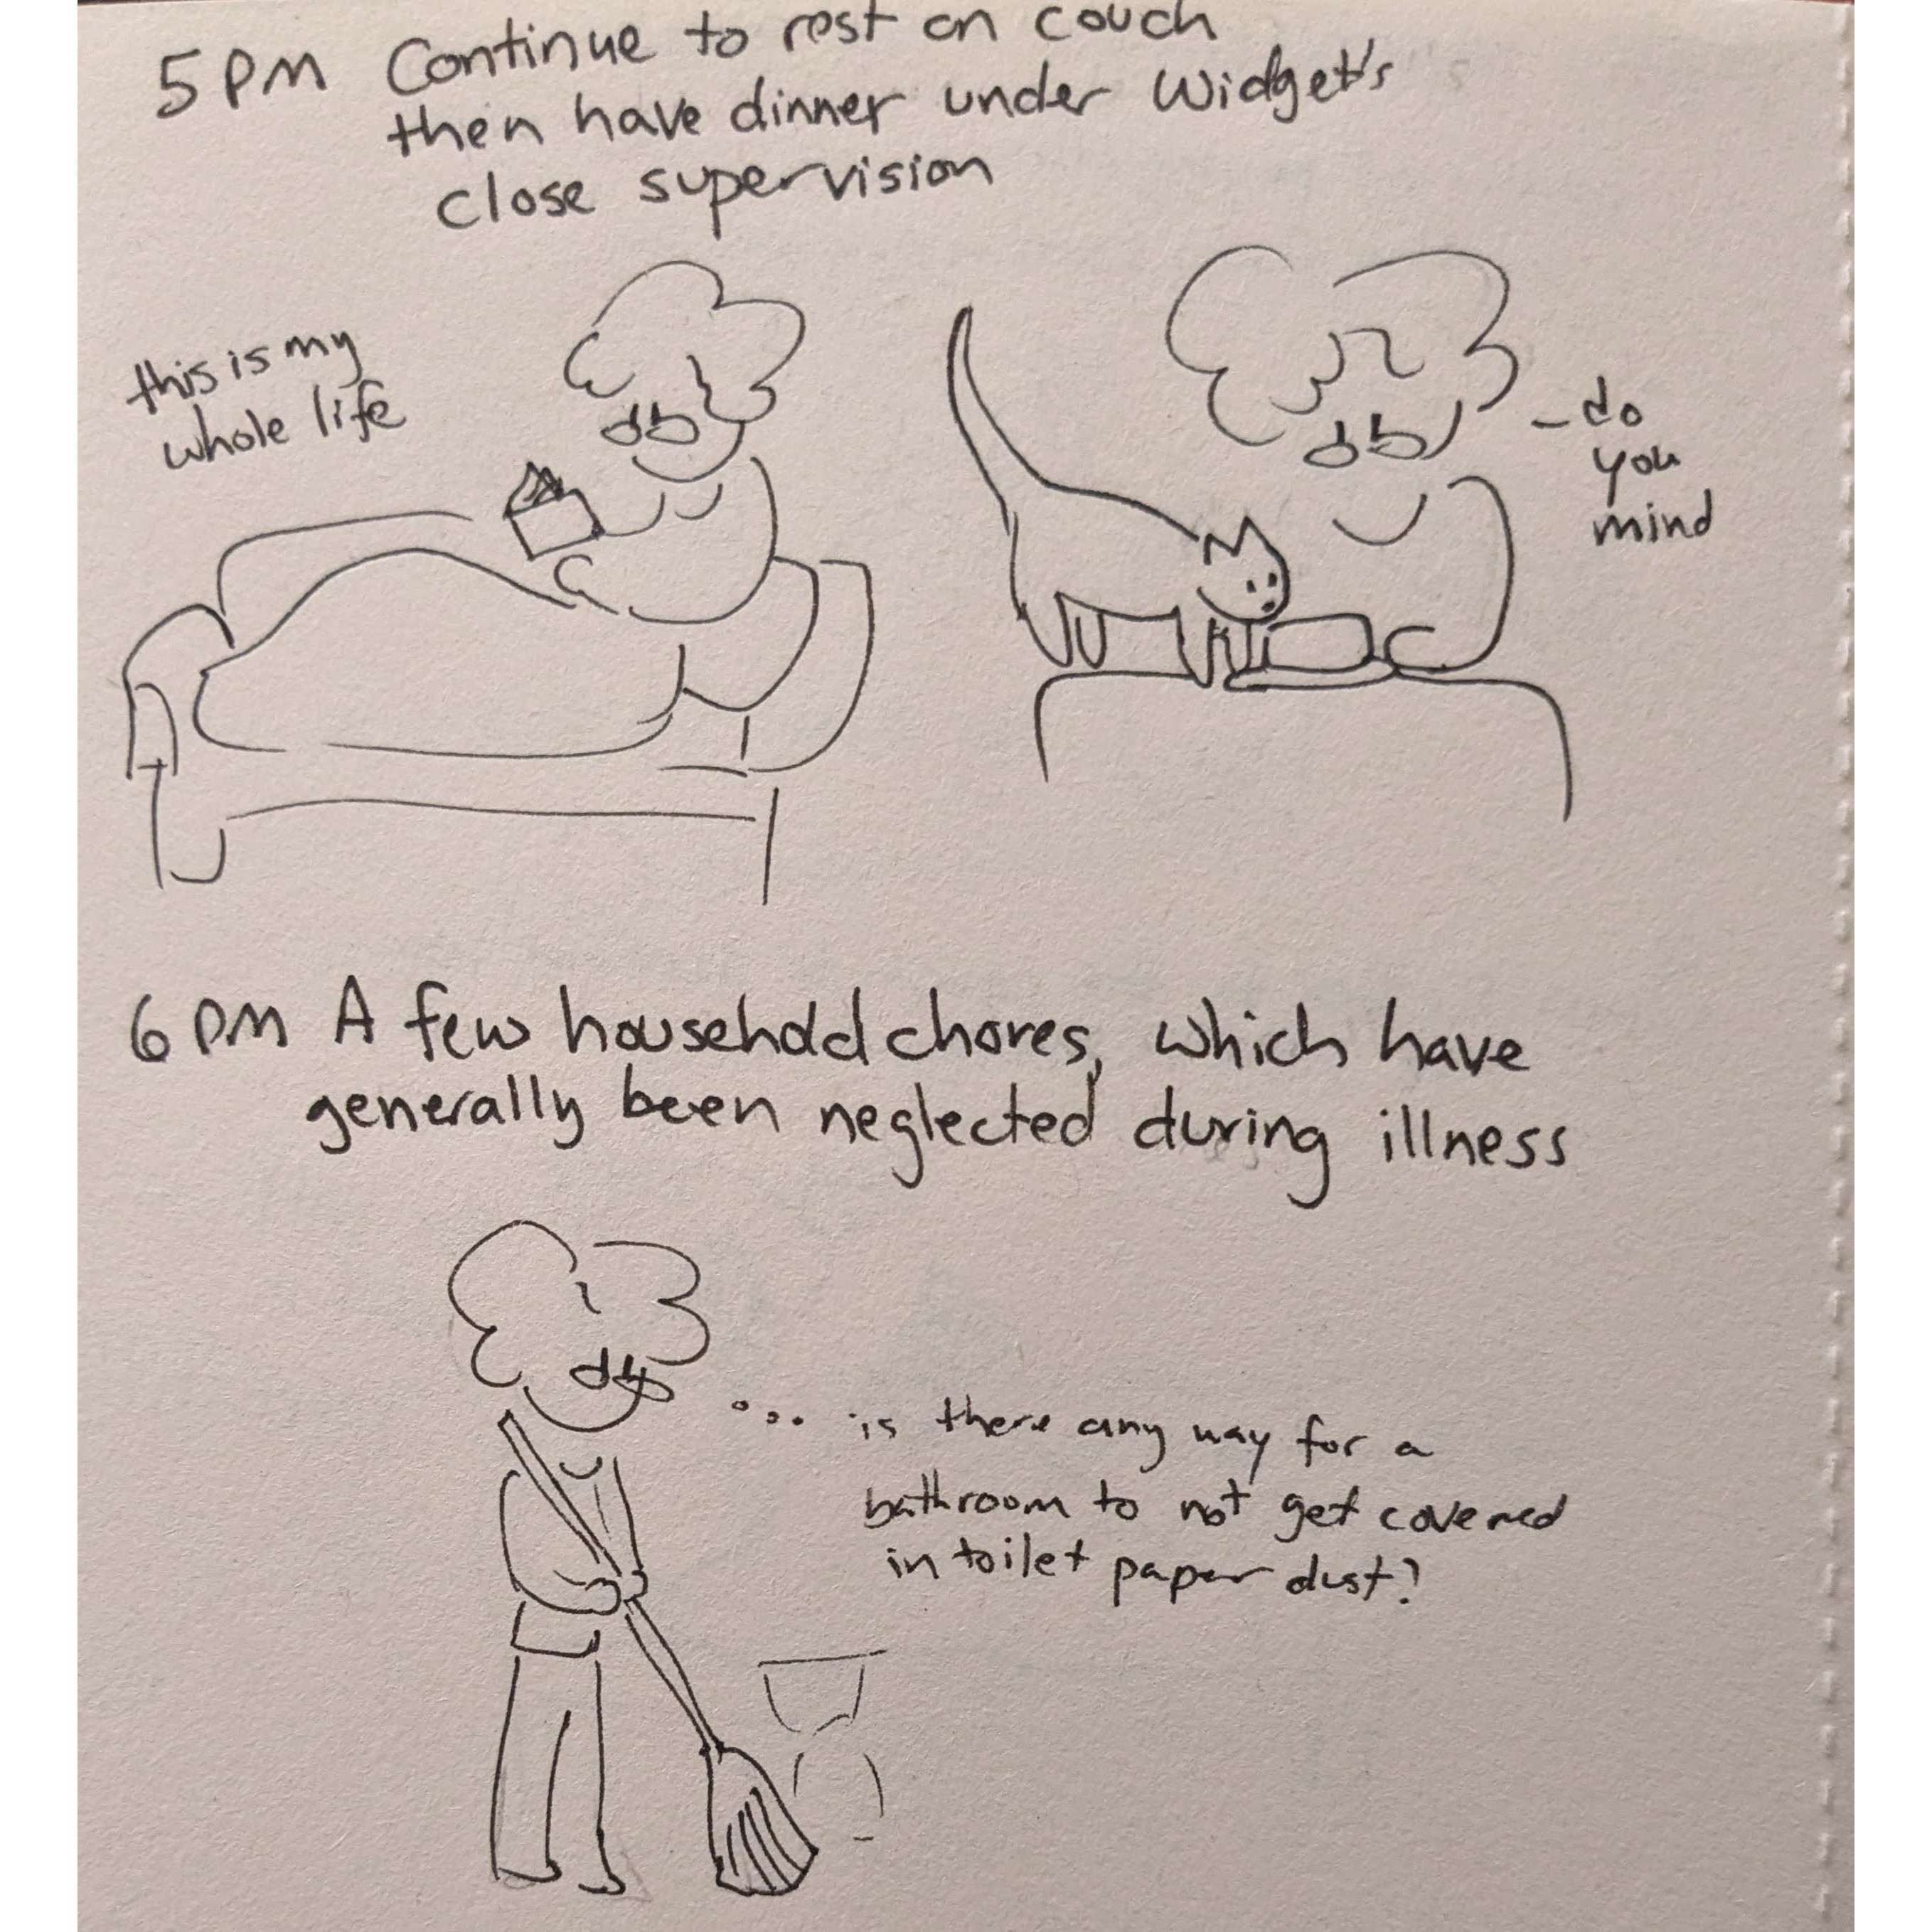 5 PM Continue to rest on couch
then have dinner under Widget's
close supervision
this is my
whole life
- do
you
mind
6 PM A few household chores, which have
generally been neglected during illness
... is there any way for a
bathroom to not get covered
in toilet paper dust?